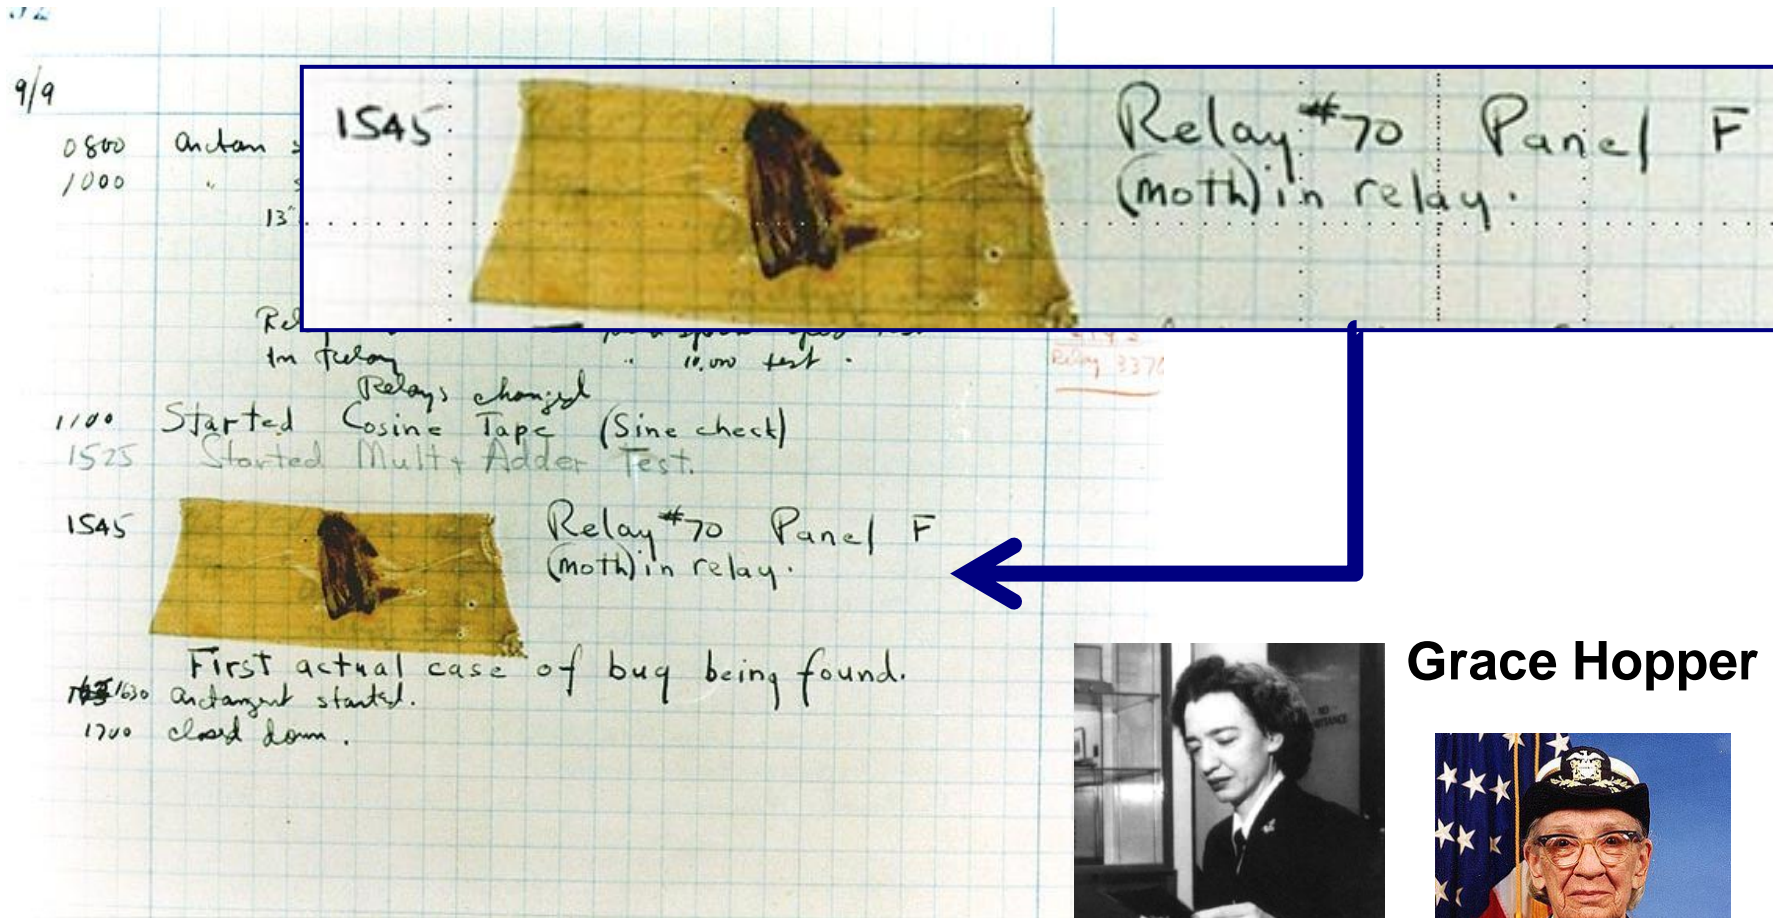 9/9
1545 Relay #70 Panel F
(moth) in relay.
0800 Arctan
1000 "
13"
Rel
10,000 test .
In Relay
Relay 3370
Relays changed
1100 Started Cosine Tape (Sine check)
1525 Started Mult + Adder Test.
1545 Relay #70 Panel F
(moth) in relay.
First actual case of bug being found.
1630 Arctangent started.
1700 closed down .
Grace Hopper